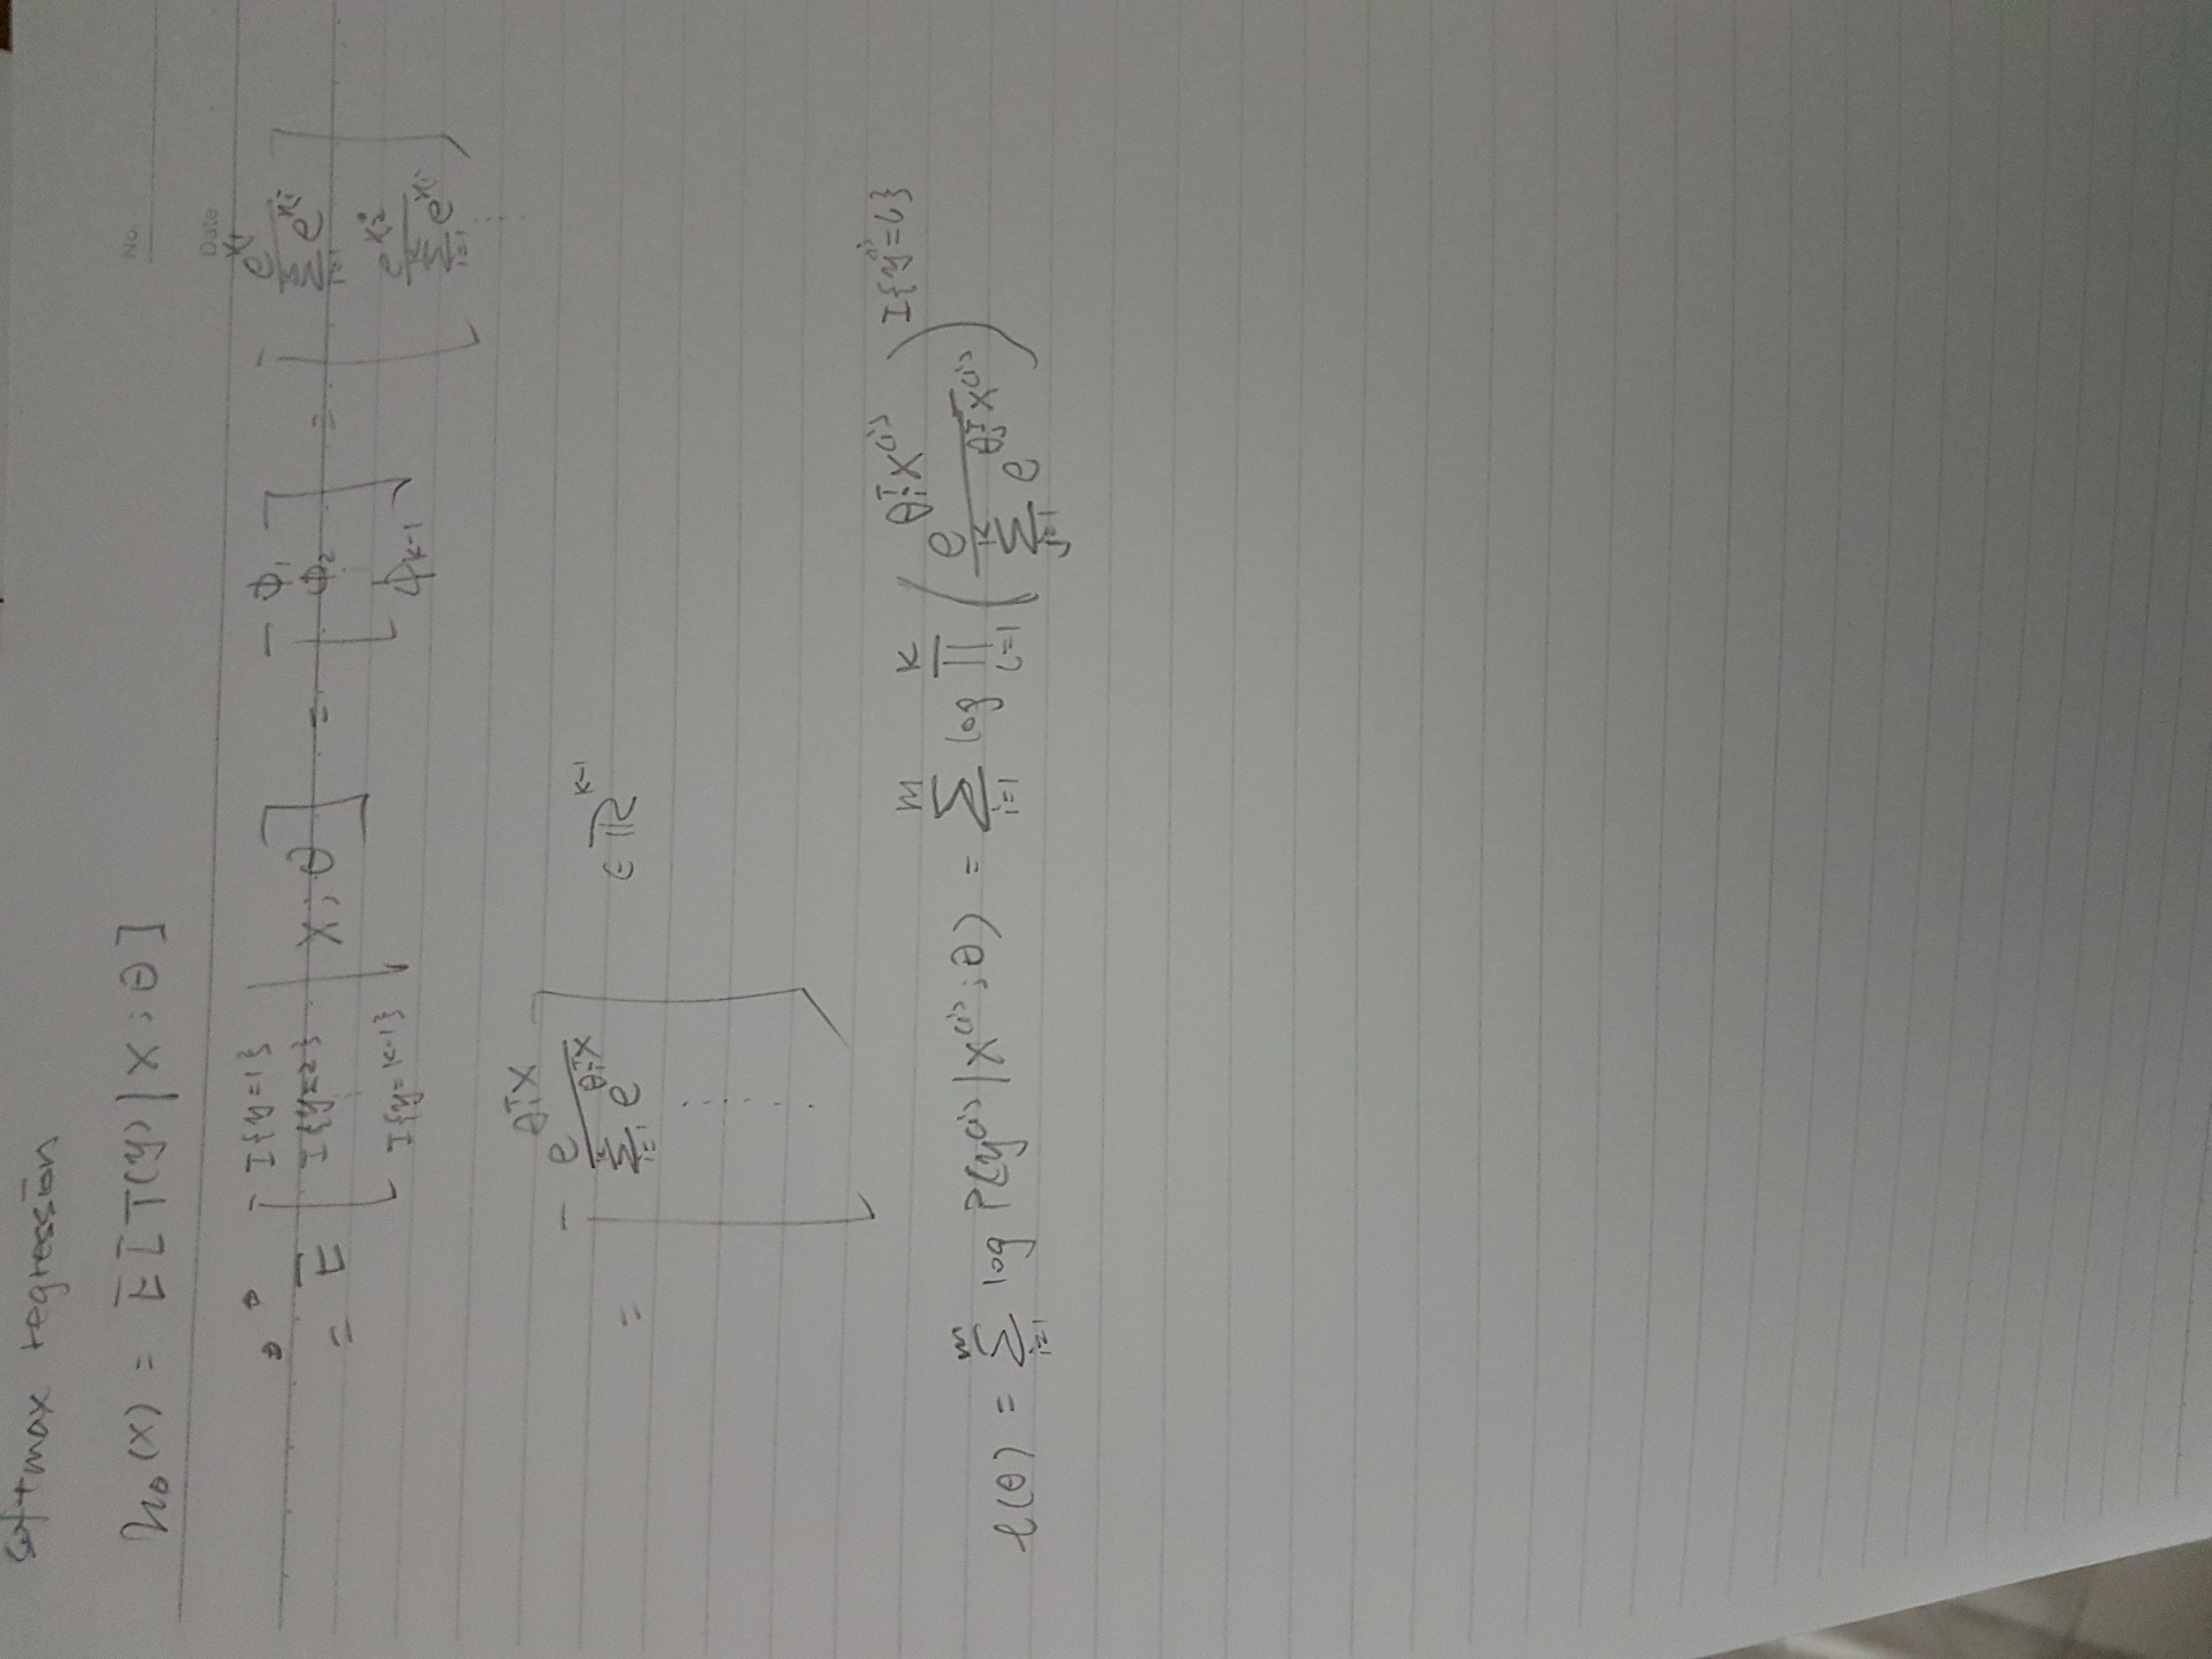 softmax regression
h_θ(x) = E[T(y)|x;θ]
No.
Date
= E [ I{y=1} I{y=2} ⋮ I{y=k-1} | x;θ ] = [ φ_1 φ_2 ⋮ φ_{k-1} ] = [ e^{x_1} / Σ_{i=1}^{k} e^{x_i} e^{x_2} / Σ_{i=1}^{k} e^{x_i} ⋮ ]
= [ e^{θ_1^T x} / Σ_{i=1}^{k} e^{θ_i^T x} ⋮ ] ∈ ℝ^{k-1}
ℓ(θ) = Σ_{i=1}^{m} log P(y^{(i)}|x^{(i)};θ) = Σ_{i=1}^{m} log Π_{l=1}^{k} ( e^{θ_i^T x^{(i)}} / Σ_{j=1}^{k} e^{θ_j^T x^{(i)}} )^{I{y^{(i)}=l}}